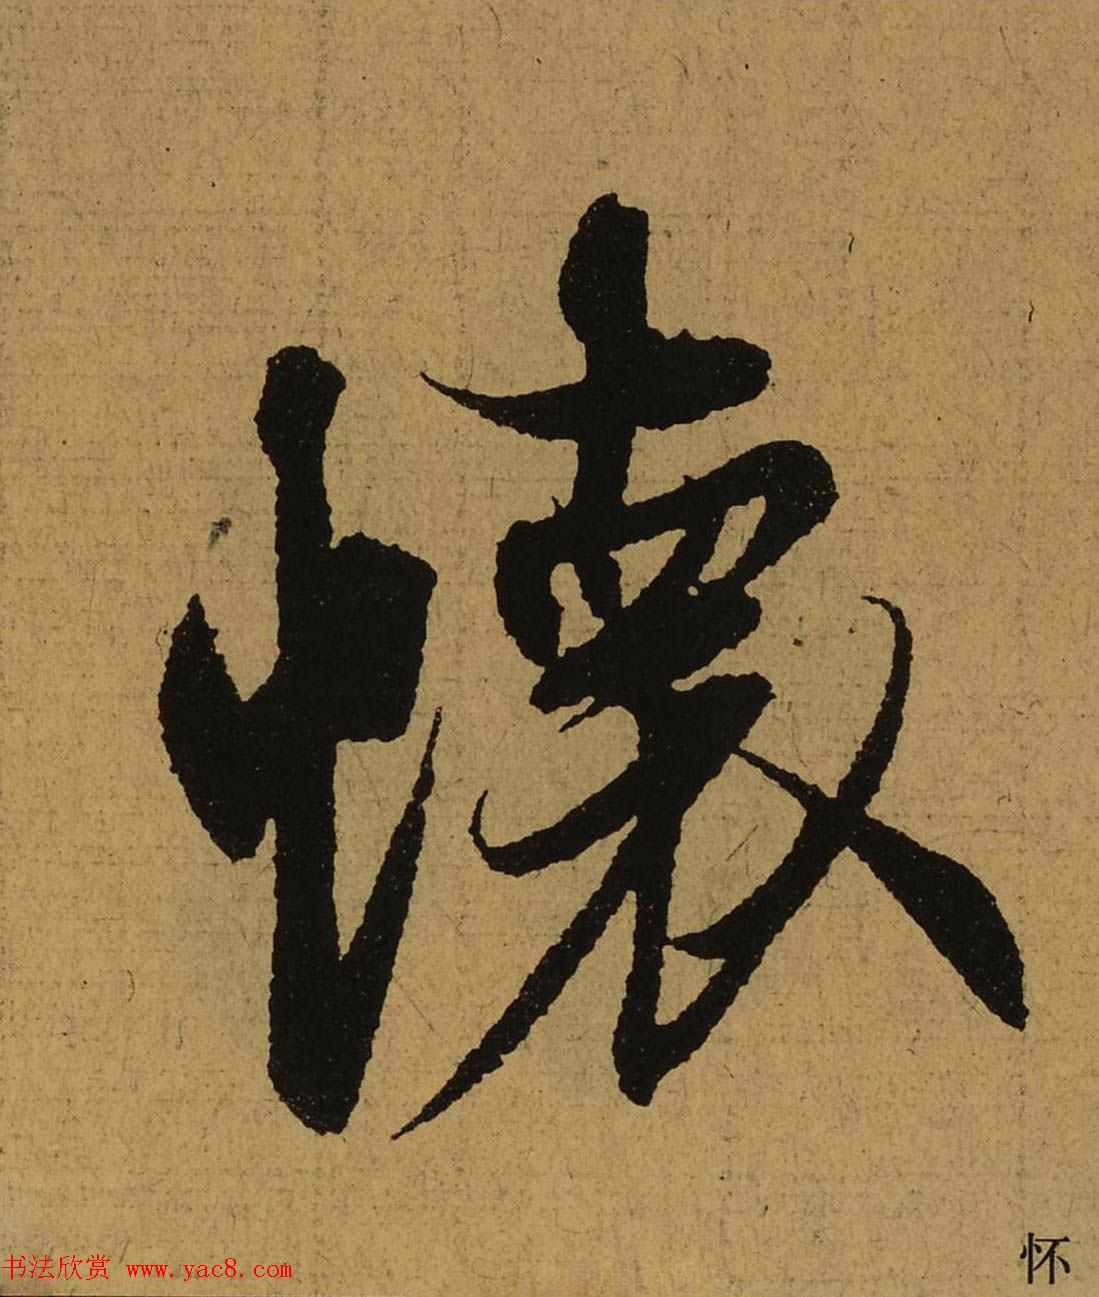 懷
怀
书法欣赏 www.yac8.com